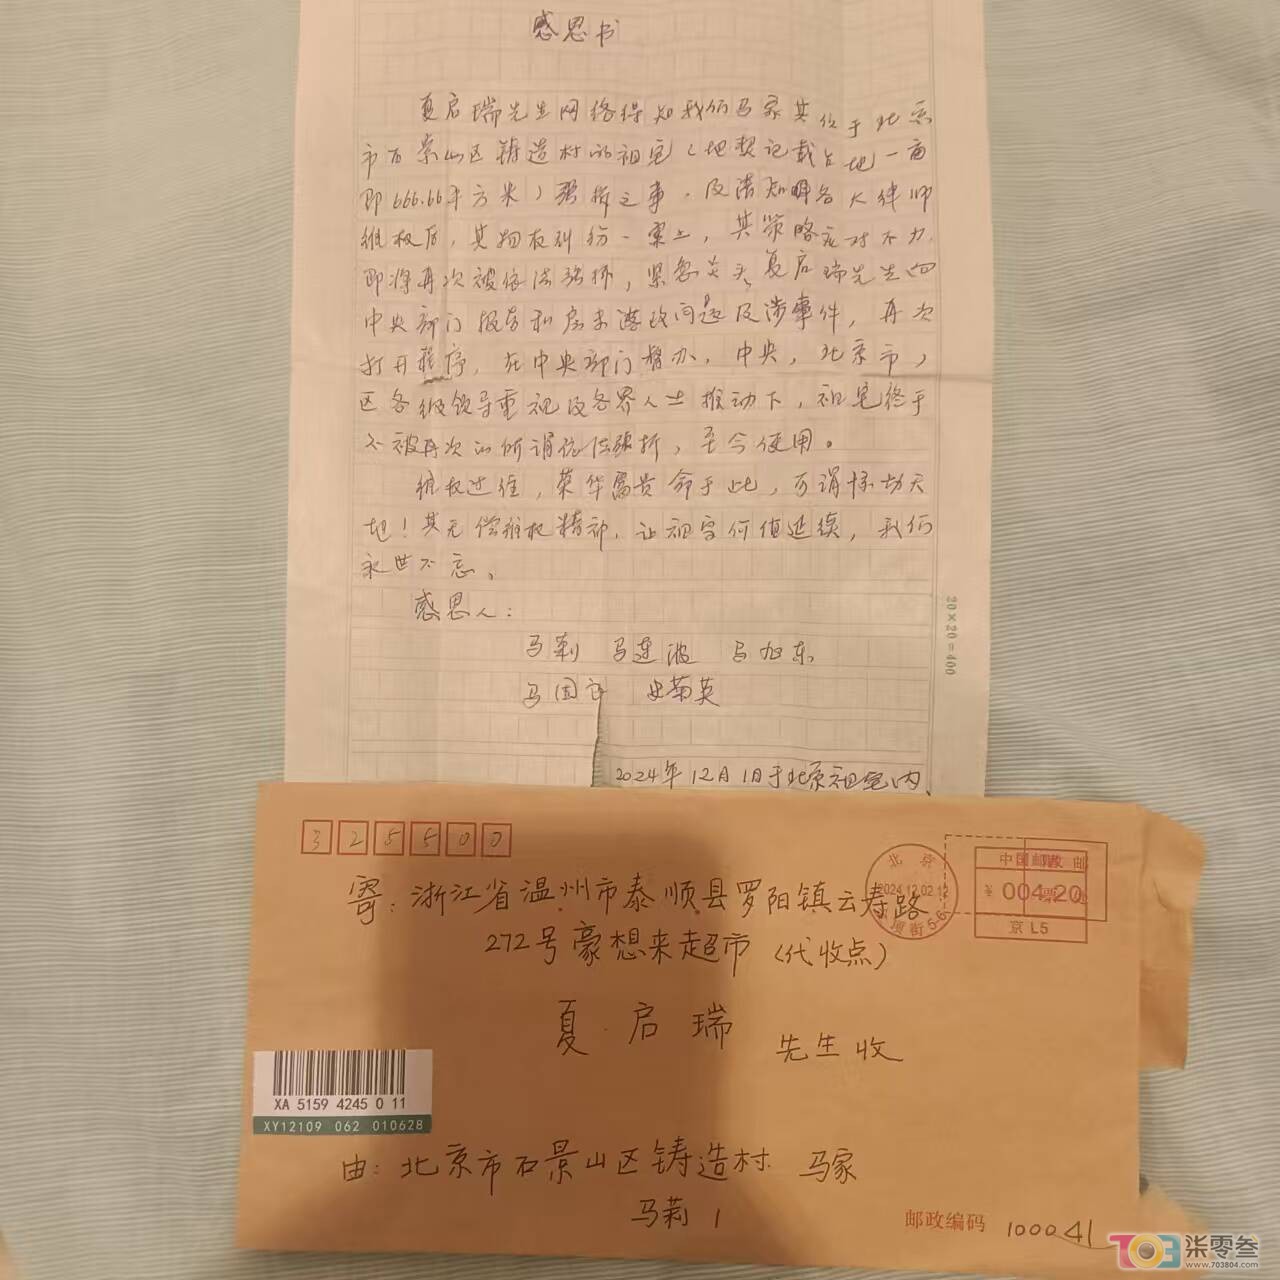 感恩书
夏启瑞先生网络得知我们马家其位于北京
市石景山区铸造村的祖宅（地契记载占地一亩
即666.66平方米）强拆之事，及清知聘各大律师
维权后，其物权纠纷一案上，其策略应对不力，
即将再次被依法强拆，紧急关头，夏启瑞先生向
中央部门报告私房未落政问题及涉事件，再次
打开程序，在中央部门督办，中央，北京市，
区各级领导重视及各界人士推动下，祖宅终于
不被再次的所谓依法强拆，至今使用。
维权过往，荣华富贵命于此，可谓惊动天
地！其无偿维权精神，让祖宅价值延续，我们
永世不忘。
感恩人：
马莉 马连波 马旭东
马国 史菊英
2024年12月1日于北京祖宅内
20×20=400
325500
寄：浙江省温州市泰顺县罗阳镇云寿路
272号豪想来超市（代收点）
夏启瑞 先生收
北京
2024.12.02.12
中国邮政
¥004.20
京L5
XA 5159 4245 0 11
XY12109 062 010628
由：北京市石景山区铸造村 马家
马莉
邮政编码 100041
703 柒零叁
www.703804.com